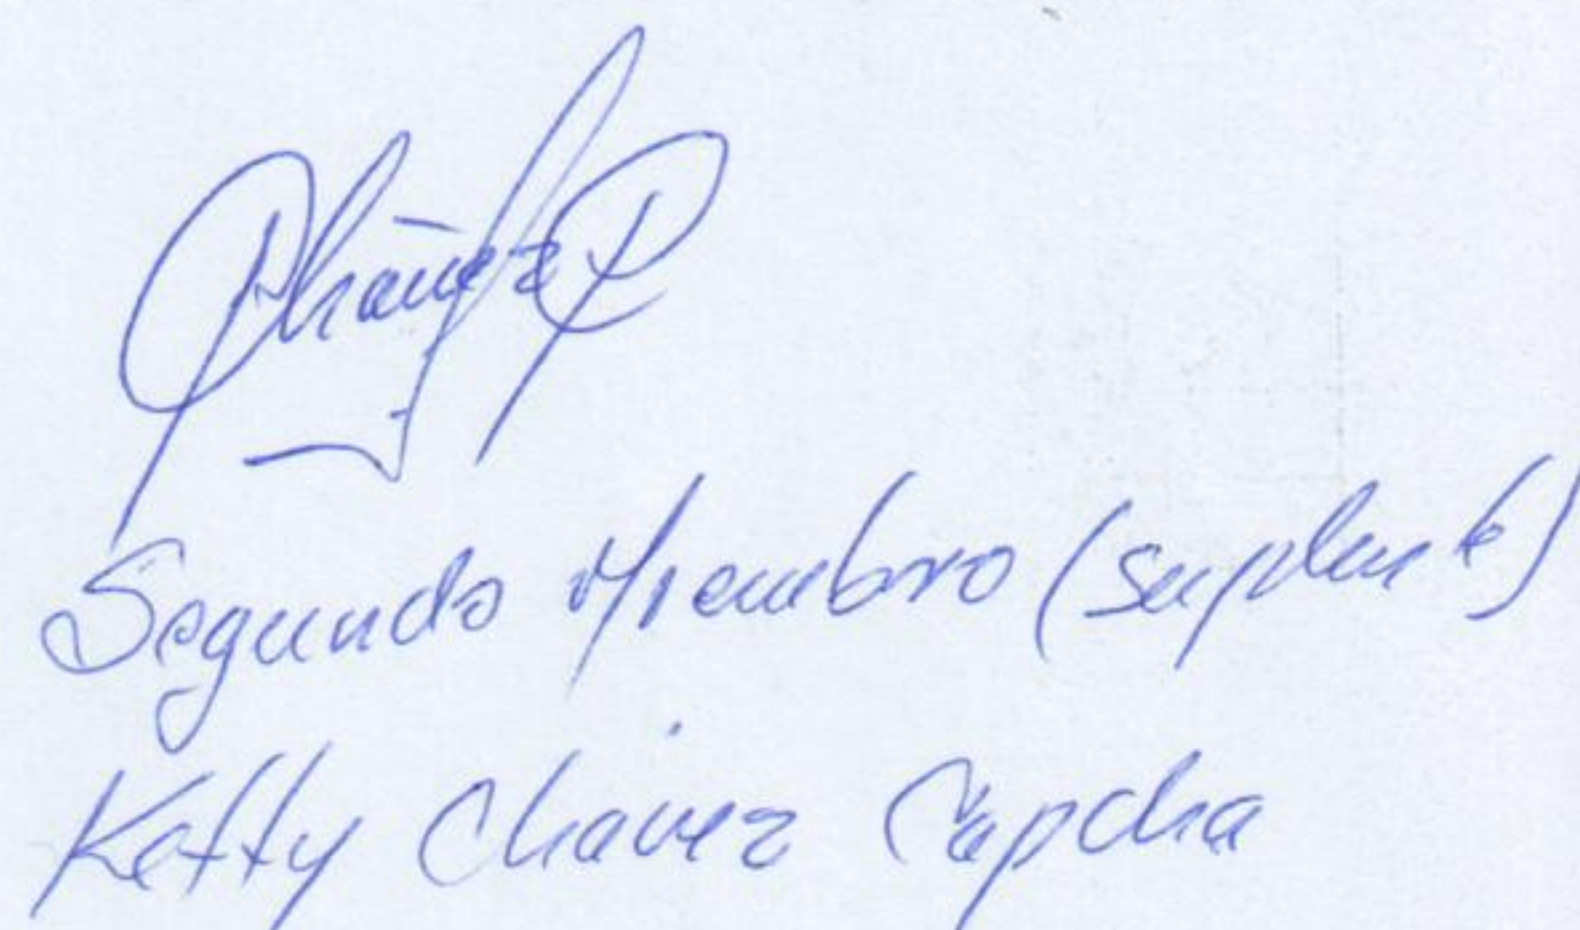 Segundo Miembro (suplente)
Ketty Chavez Capcha